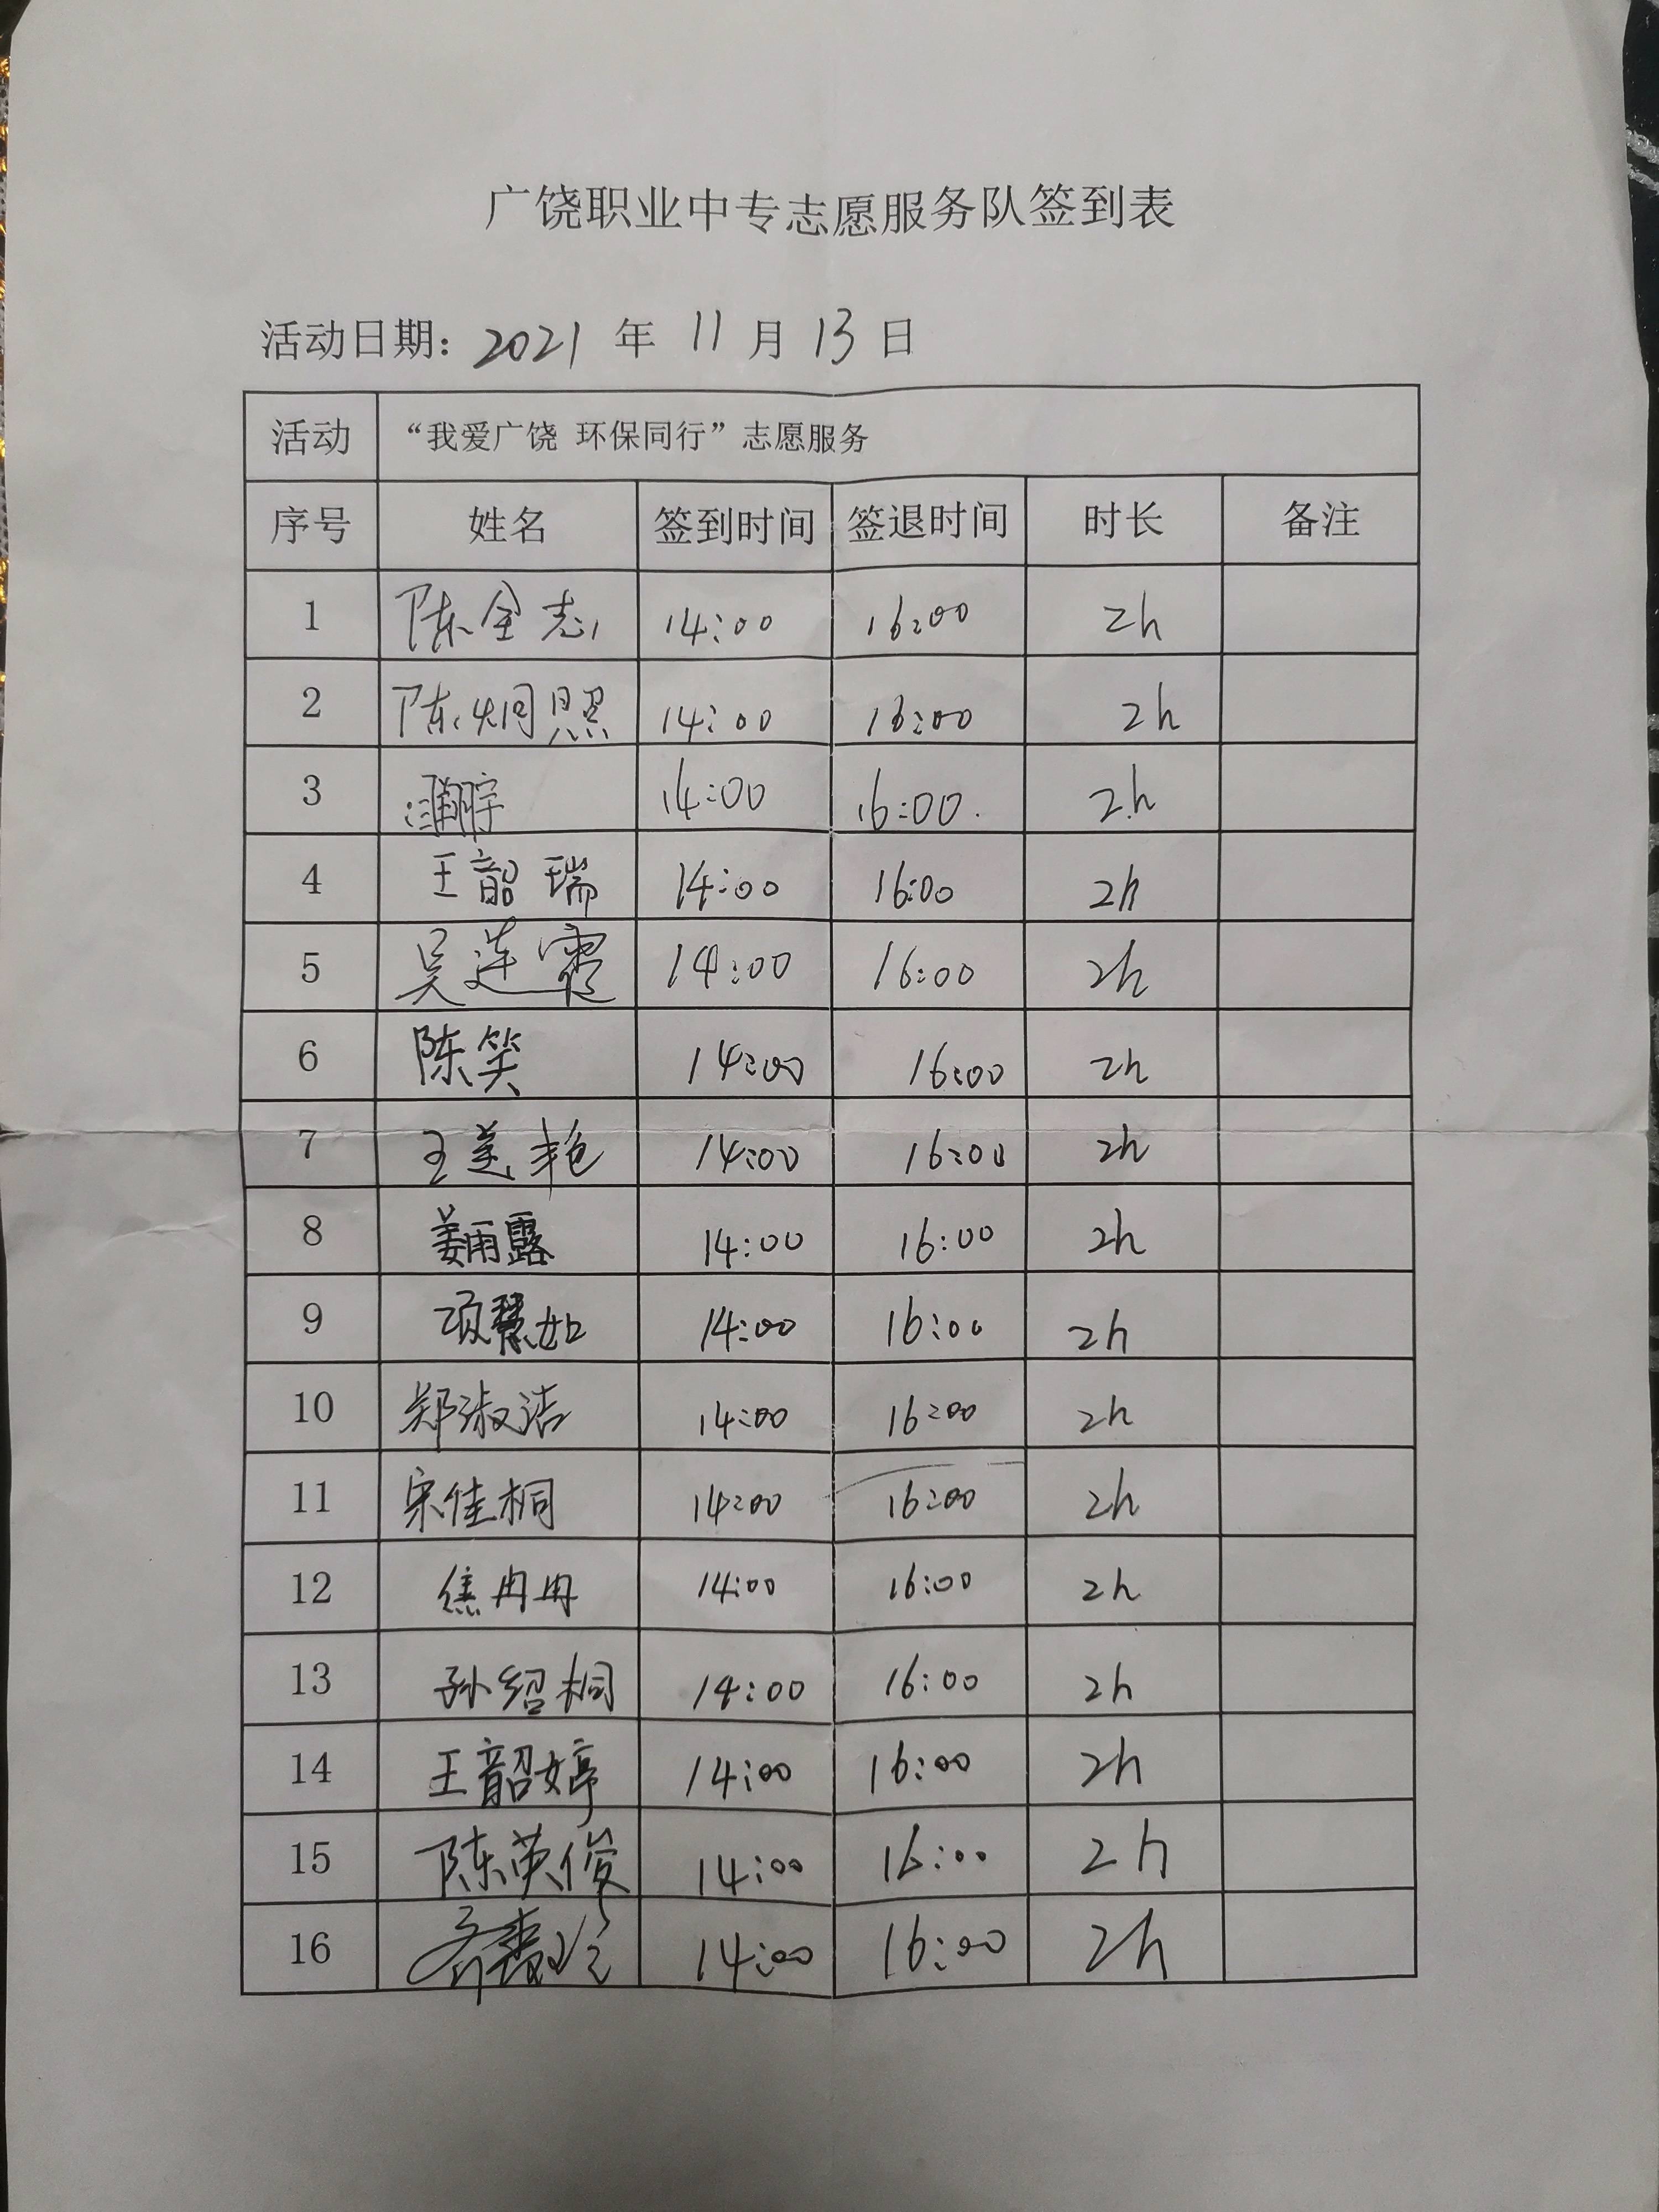 广饶职业中专志愿服务队签到表
活动日期: 2021 年 11 月 13 日
活动 “我爱广饶 环保同行”志愿服务
序号 姓名 签到时间 签退时间 时长 备注
1 陈金志 14:00 16:00 2h
2 陈炯照 14:00 16:00 2h
3 14:00 16:00. 2h
4 王韶瑞 14:00 16:00 2h
5 吴莲霞 14:00 16:00 2h
6 陈笑 14:00 16:00 2h
7 王美艳 14:00 16:00 2h
8 姜雨露 14:00 16:00 2h
9 项慧如 14:00 16:00 2h
10 郑淑洁 14:00 16:00 2h
11 宋佳桐 14:00 16:00 2h
12 焦冉冉 14:00 16:00 2h
13 孙绍桐 14:00 16:00 2h
14 王韶婷 14:00 16:00 2h
15 陈英俊 14:00 16:00 2h
16 14:00 16:00 2h